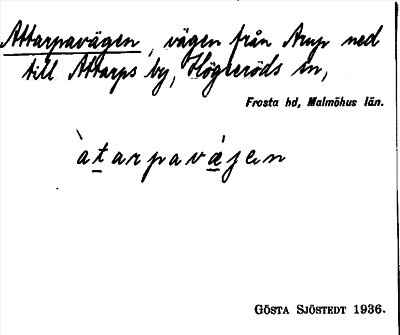 Attarpavägen, vägen från Arup ned
till Attarps by, Högseröds sn,
Frosta hd, Malmöhus län.
àtarpavägen
GÖSTA SJÖSTEDT 1936.